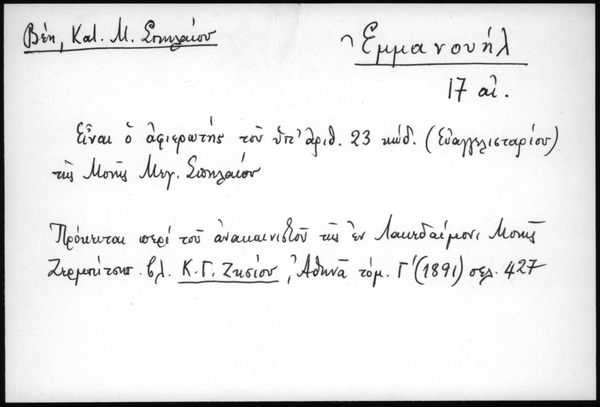 Βέη, Κατ. Μ. Σπηλαίου
Ἐμμανουήλ
17 αἰ.
Εἶναι ὁ ἀφιερωτής τοῦ ὑπ' ἀριθ. 23 κώδ. (Εὐαγγελισταρίου)
τῆς Μονῆς Μεγ. Σπηλαίου
Πρόκειται περί τοῦ ἀνακαινιστοῦ τῆς ἐν Λακεδαίμονι Μονῆς
Ζερμπίτσης. βλ. Κ. Γ. Ζησίου, Ἀθηνᾶ τόμ. Γ' (1891) σελ. 427